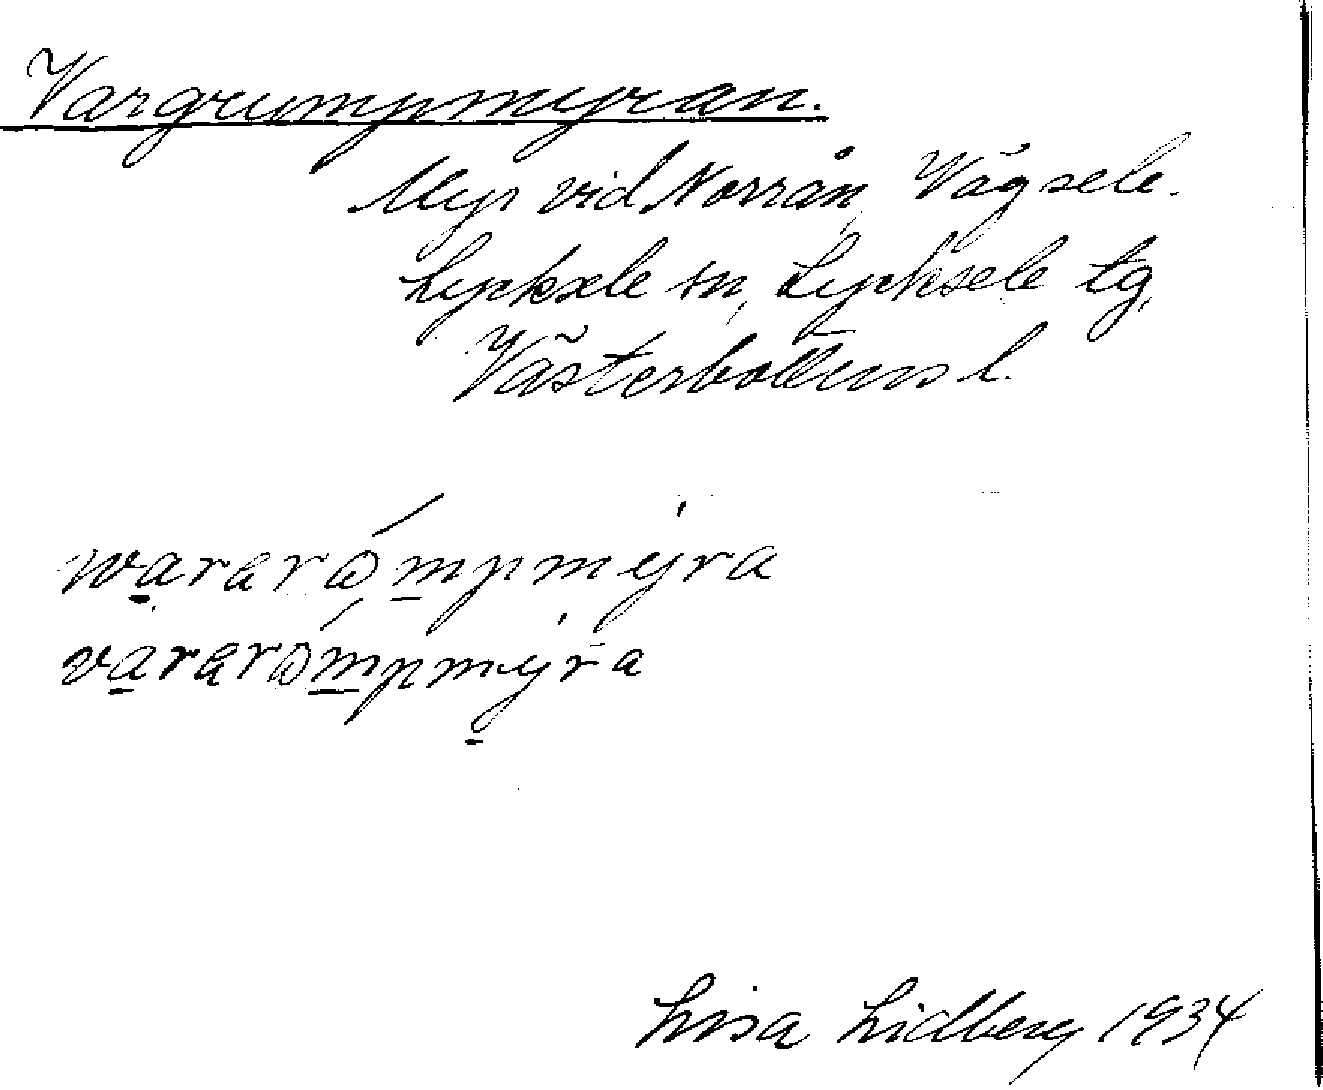 Vargrumpmyran.
Myr vid Norrån, Vägsele.
Lycksele sn, Lycksele tg,
Västerbottens l.
Lisa Lidberg 1934